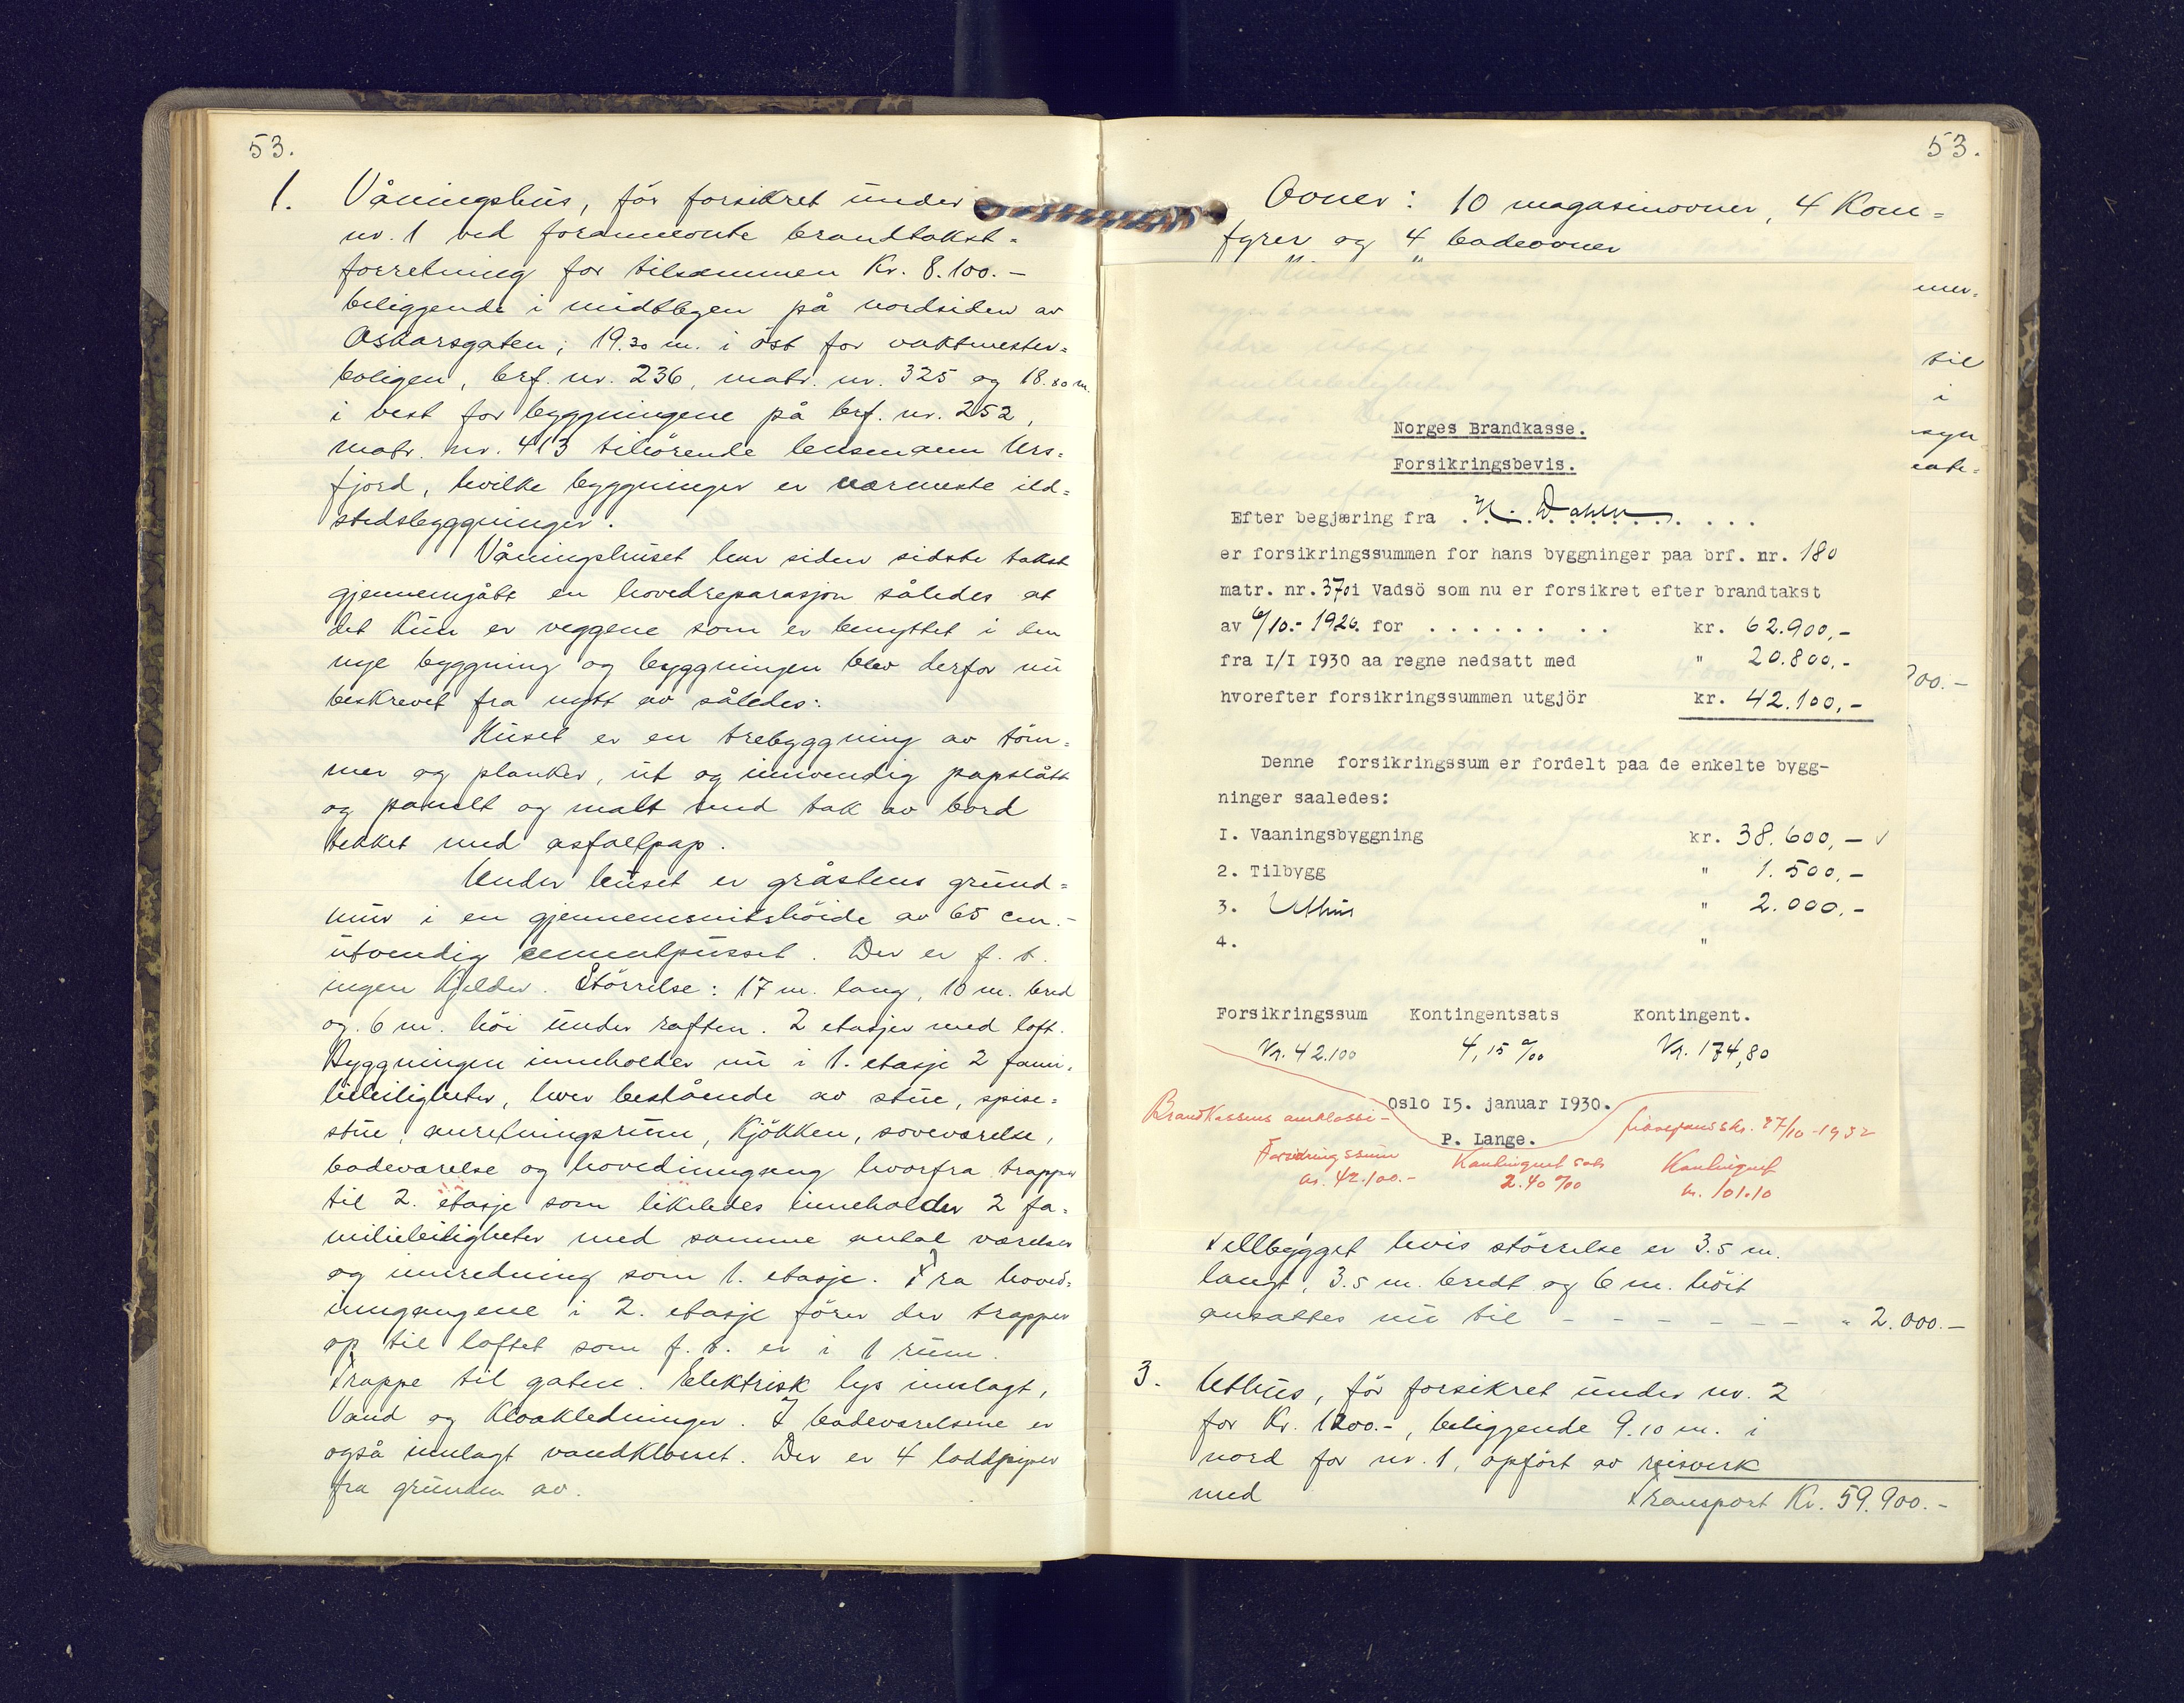 53.
1. Våningshus, før forsikret under
nr. 1 ved forannevnte brandtakst-
forretning for tilsammen Kr. 8.100.-
beliggende i midtbyen på nordsiden av
Oskarsgaten; 19.30 m. i øst for vaktmester-
boligen, brf. nr. 236, matr. nr. 325 og 18.80 m.
i vest for byggningene på brf. nr. 252,
matr. nr. 413 tilhørende lensmann Urs-
fjord, hvilke byggninger er nærmeste ild-
stedsbyggninger.
Våningshuset har siden sidste takst
gjennemgått en hovedreparasjon således at
det kun er veggene som er benyttet i den
nye byggning og byggningen blev derfor nu
beskrevet fra nytt av således:
Huset er en trebyggning av töm-
mer og planker, ut og innvendig papslått
og panelt og malt med tak av bord
tekket med asfaltpap.
Under huset er gråstens grund-
mur i en gjennemsnitshöide av 65 cm.-
utvendig cementpusset. Der er f. t.
ingen kjelder. Størrelse: 17 m. lang, 10 m. bred
og 6 m. höi under raften. 2 etasjer med loft.
Byggningen inneholder nu i 1. etasje 2 fami-
lieleiligheter, hver bestående av stue, spise-
stue, anretningsrum, kjökken, soveværelse,
badeværelse og hovedinngang hvorfra trapper
til 2. etasje som likeledes inneholder 2 fa-
milieleiligheter med samme antal værelser
og innredning som 1. etasje. Fra hoved-
inngangene i 2. etasje förer der trapper
op til loftet som f. t. er i 1 rum.
Trappe til gaten. Elektrisk lys innlagt,
Vand og kloakledninger. I badeværelsene er
også innlagt vandkloset. Der er 4 loddpiper
fra grunden av.
53.
Ovner: 10 magasinovner, 4 Kom-
fyrer og 4 badeovner
mer-
til
i
syn
Norges Brandkasse.
Forsikringsbevis.
Efter begjæring fra H. Dahle
er forsikringssummen for hans byggninger paa brf. nr. 180
matr. nr. 370 i Vadsö som nu er forsikret efter brandtakst
av 6/10.- 1926. for . . . . . . . . . kr. 62.900,-
fra I/I 1930 aa regne nedsatt med " 20.800,-
00.-
hvorefter forsikringssummen utgjör kr. 42.100,-
Denne forsikringssum er fordelt paa de enkelte bygg-
ninger saaledes:
1. Vaaningsbyggning kr. 38.600,- ✓
2. Tilbygg " 1.500,-
3. Uthus " 2.000.-
4. "
Forsikringssum Kontingentsats Kontingent.
Kr. 42.100 4,15 ‰ Kr. 174,80
Oslo 15. januar 1930.
P. Lange.
Brandkassens omklassi-
27/10-1932
Forsikringssum Kontingent sats Kontingent
kr. 42.100.- 2.40 ‰ kr. 101.10
tillbygget hvis störrelse er 3.5 m.
langt, 3.5 m. bredt og 6 m. höit
ansattes nu til - - - - - - " 2.000.-
3. Uthus, för forsikret under nr. 2
for Kr. 1200.-, beliggende 9.10 m. i
nord for nr. 1, opfört av reisverk
med Transport Kr. 59.900.-